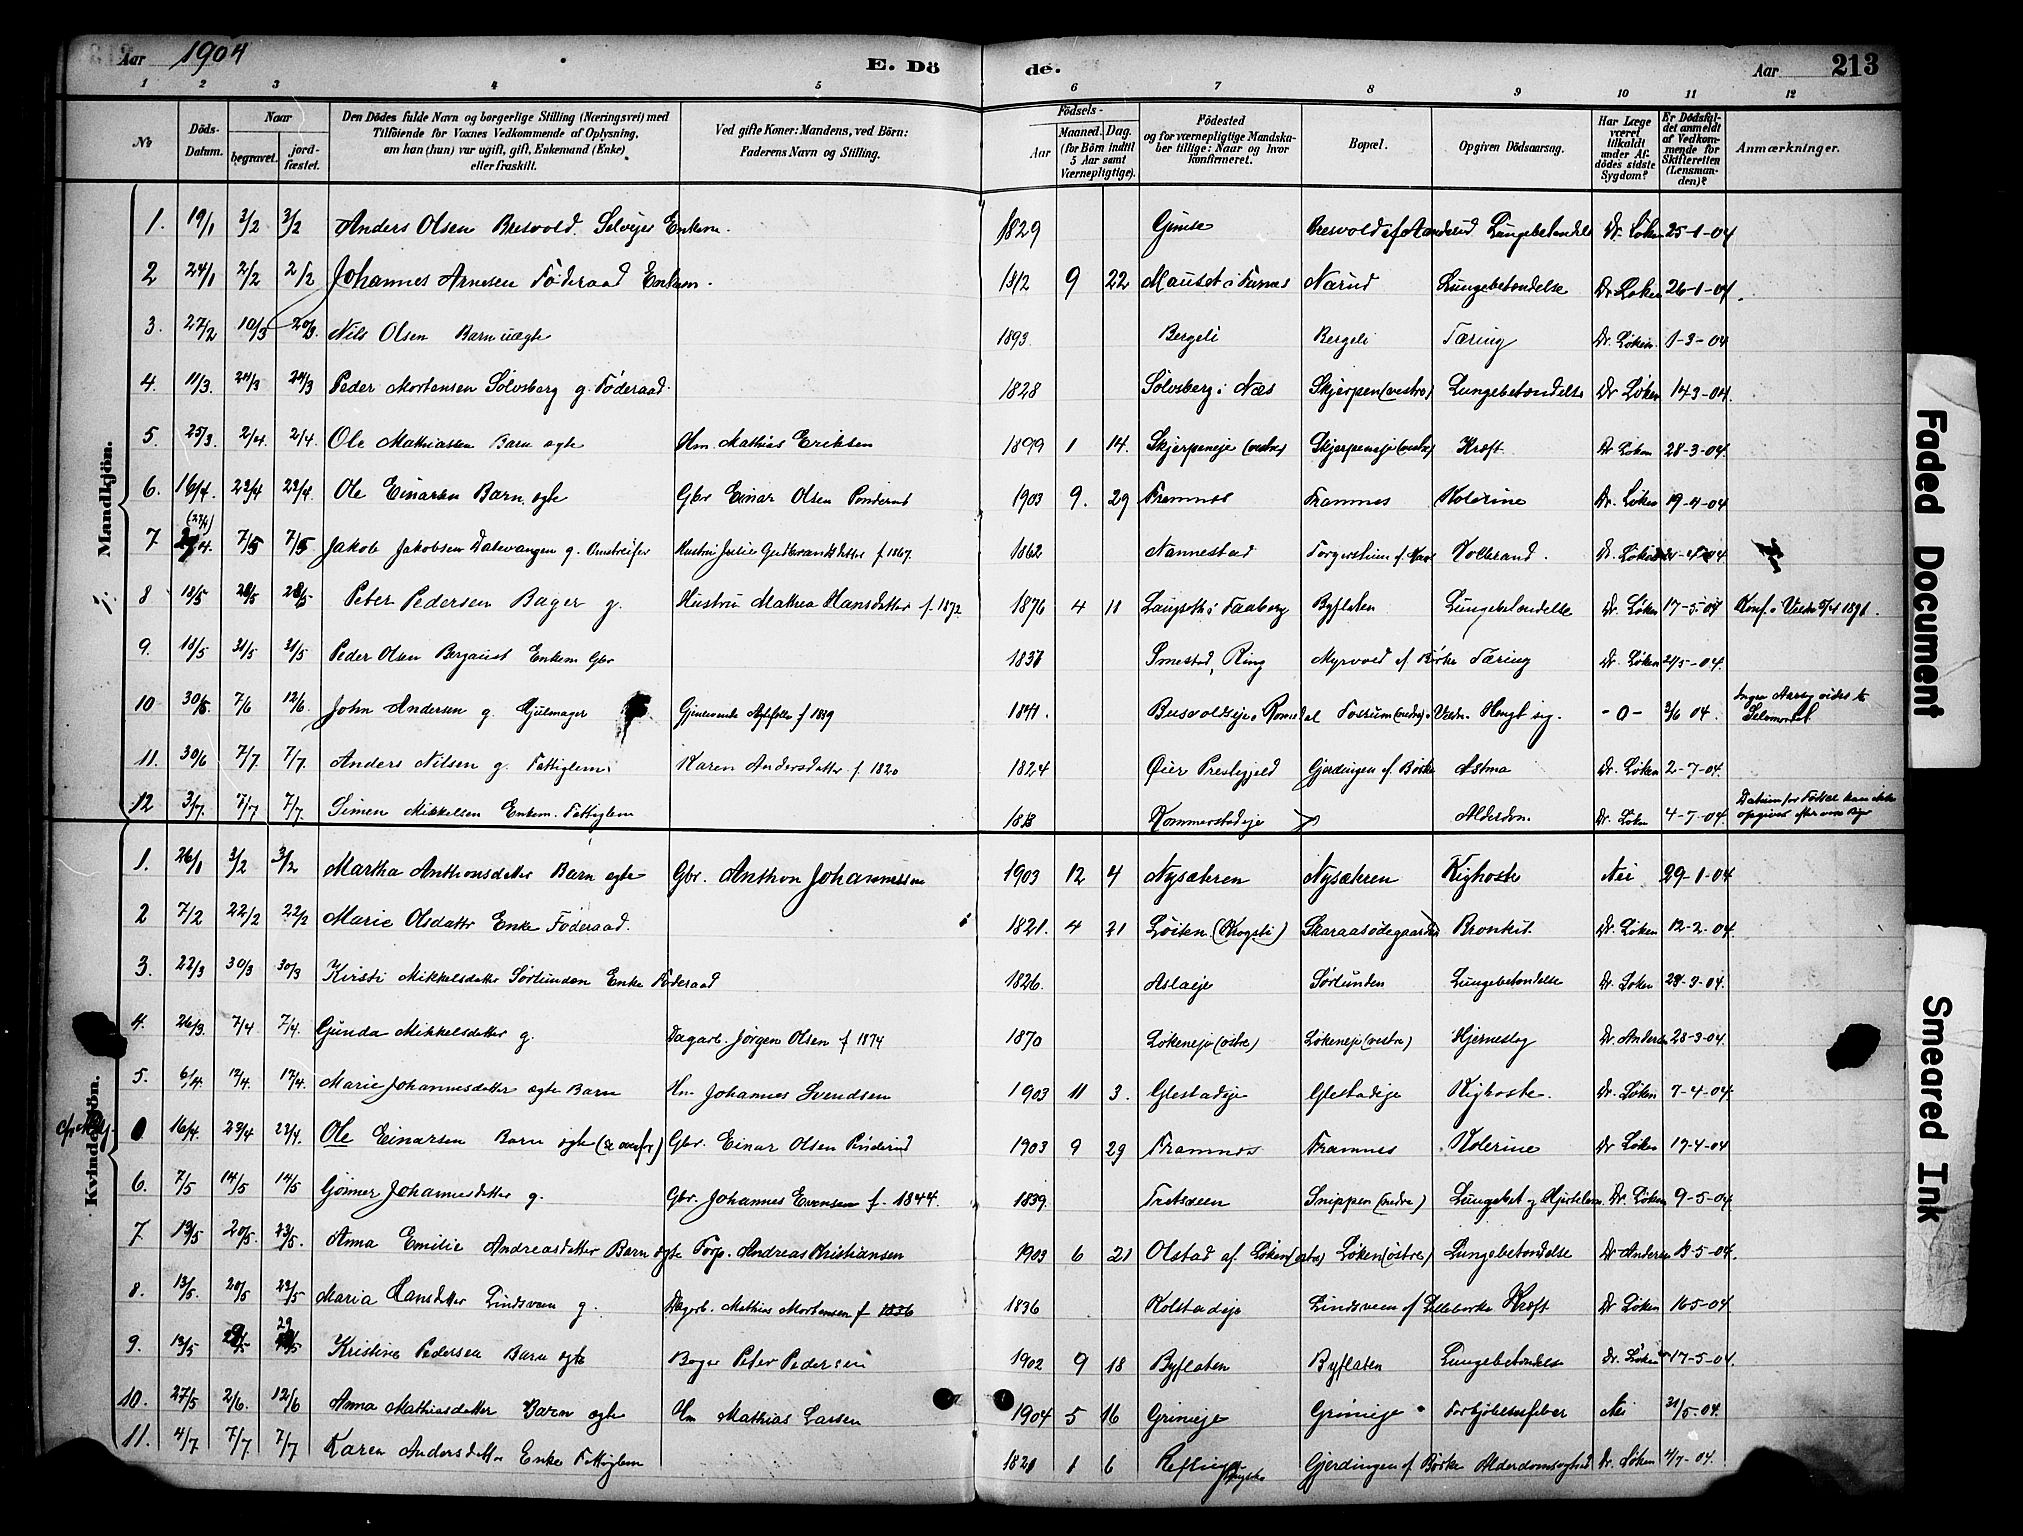 Aar 1904 E. Döde. Aar 213
1 2 3 4 5 6 7 8 9 10 11 12
No Döds-Datum. Naar begravet. jordfæstet. Den Dödes fulde Navn og borgerlige Stilling (Næringsvei) med Tilföiende for Voxnes Vedkommende af Oplysning, om han (hun) var ugift, gift, Enkemand (Enke) eller fraskilt. Ved gifte Koner: Mandens, ved Börn: Faderens Navn og Stilling. Födsels- Aar Maaned. Dag. (for Börn indtil 5 Aar samt Værnepligtige). Födested og for værnepligtige Mandskaber tillige: Naar og hvor konfirmeret. Bopæl. Opgiven Dödsaarsag. Har Læge været tilkaldt under Afdödes sidste Sygdom? Er Dödsfaldet anmeldt af Vedkommende for Skifteretten (Lensmanden)? Anmærkninger.
Mandkjön.
1. 19/1 3/2 3/2 Anders Olsen Bresvold Selveier Enkem. 1829 Gimse Bresvold af Lungebetændelse Dr. Løken 25-1-04
2 24/1 2/2 2/2 Johannes Arnesen Føderaad Enkem. 1812 9 22 Mauset i Furnes Narud Lungebetændelse Dr. Løken 26-1-04.
3. 27/2 10/3 20/3 Nils Olsen Barn uægte 1893 Bergeli Bergeli Tæring Dr. Løken 1-3-04
4. 11/3. 24/3 24/3 Peder Mortensen Sølvsberg g. Føderaad 1828 Sølvsberg i Næs Skjerpen (vestre) Lungebetændelse Dr Løken 14-3-04.
5. 25/3. 2/4. 2/4. Ole Mathiassen Barn ægte Hm. Mathias Eriksen 1899 1 14. Skjerpeneje (vestre) Skjerpeneje (vestre) Kræft Dr Løken 28-3-04.
6. 16/4. 23/4 23/4. Ole Einarsen Barn ægte Gbr Einar Olsen Pinderud 1903 9. 29 Framnes Framnes Kolerine Dr. Løken 19-4-04
7 (27/4) 7/5 7/5 Jakob Jakobsen Dalevangen g. Omstreifer Hustru Julie Gudbrandsdatter f 1867. 1862 Nannestad Kolbrand. Dr. Løken
8 13/5 28/5 28/5 Peter Pedersen Bager g. Hustru Mathea Hansdatter f. 1872. 1876 4 11 Faaberg Byflaten Lungebetændelse Dr. Løken 17-5-04 Konf. i 1891.
9. 18/5 31/5 31/5 Peder Olsen Bergaust Enkem Gbr 1837 Smestad, Ring Myrvold af Børke Tæring Dr. Løken 21/5-04.
10 30/5 7/6 12/6. John Andersen g. Hjulmager 1841. i Romedal Hængt sig. -0- 3/6 04. Selvmord
11. 30/6 7/7. 7/7. Anders Nilsen g. Fattiglem. Karen Andersdatter f 1820 1824 Øier Prestegjeld Gjerdingen af Børke Astma Dr. Løken 2-7-04.
12 3/7. 7/7 7/7. Simen Mikkelsen Enkem. Fattiglem Kommerstadeje Alderdom. Dr. Løken 4-7-04. Datum for Fødsel kan ikke opgives
Kvindekjön.
1. 26/1 3/2 3/2 Martha Anthonsdatter Barn ægte Gbr. Anthon Johannessen 1903 12 4 Nysæteren Nysæteren Kighoste Nei 29-1-04
2 7/2 22/2 22/2 Marie Olsdatter Enke Føderaad. 1821. 4 21 Løiten (Kogsti) Skaraasødegaarden Bronkit. Dr. Løken 12-2-04.
3. 22/3 30/3 30/3 Kirsti Mikkelsdatter Sørlunden Enke Føderaad 1826. Aslaeje Sørlunden Lungebetændelse Dr. Løken 23-3-04.
4. 26/3. 7/4 7/4. Gunda Mikkelsdatter g. Dagarb. Jørgen Olsen f 1874 1870 Løkeneje (østre) Løkeneje (vestre) Hjernesyg Dr. Andersen 28-3-04.
5. 6/4. 17/4. 17/4. Marie Johannesdatter ægte Barn Hm Johannes Svendsen 1903 11 3. Glestadeje Glestadeje Kighoste. Dr. Løken 7-4-04.
16/4. 23/4 23/4. Ole Einarsen Barn ægte (se ovenfor) Gbr. Einar Olsen Pinderud 1903 9 29 Framnes Framnes Kolerine Dr Løken 19-4-04
6. 7/5 14/5 14/5 Johannesdatter g. Gbr. Johannes Evensen f. 1844. 1839. Tretsveen Snippen (nedre) Lungebet. og Hjertelam. Dr. Løken 9-5-04.
7 13/5 20/5. 23/5. Anna Emilie Andreasdatter Barn ægte Torp. Andreas Kristiansen 1903 6 21 Olstad af Løken (østre) Løken (østre) Lungebetændelse Dr Andersen 13-5-04.
8. 13/5. 20/5 23/5 Maria Hansdatter Lindsveen g. Dagarb. Mathias Mortensen f 1836 1836 Kolstadeje Lindsveen af Lilleborke Kræft Dr Løken 16-5-04
9 13/5 29/5 Kristine Pedersen Barn ægte Bager Peter Pedersen 1902 9 18 Byflaten Byflaten Lungebetændelse Dr. Løken 17-5-04
10. 27/5 2/6. 12/6 Anna Mathiasdatter Barn ægte Hm Mathias Larsen 1904 5 16 Grimeje Grimeje Nei 31/5-04.
11. 4/7 7/7 7/7 Karen Andersdatter Enke Fattiglem 1821 1 6 Gjerdingen af Børke Alderdomssvaghed Dr. Løken 4/7-04.
Faded Document
Smeared Ink